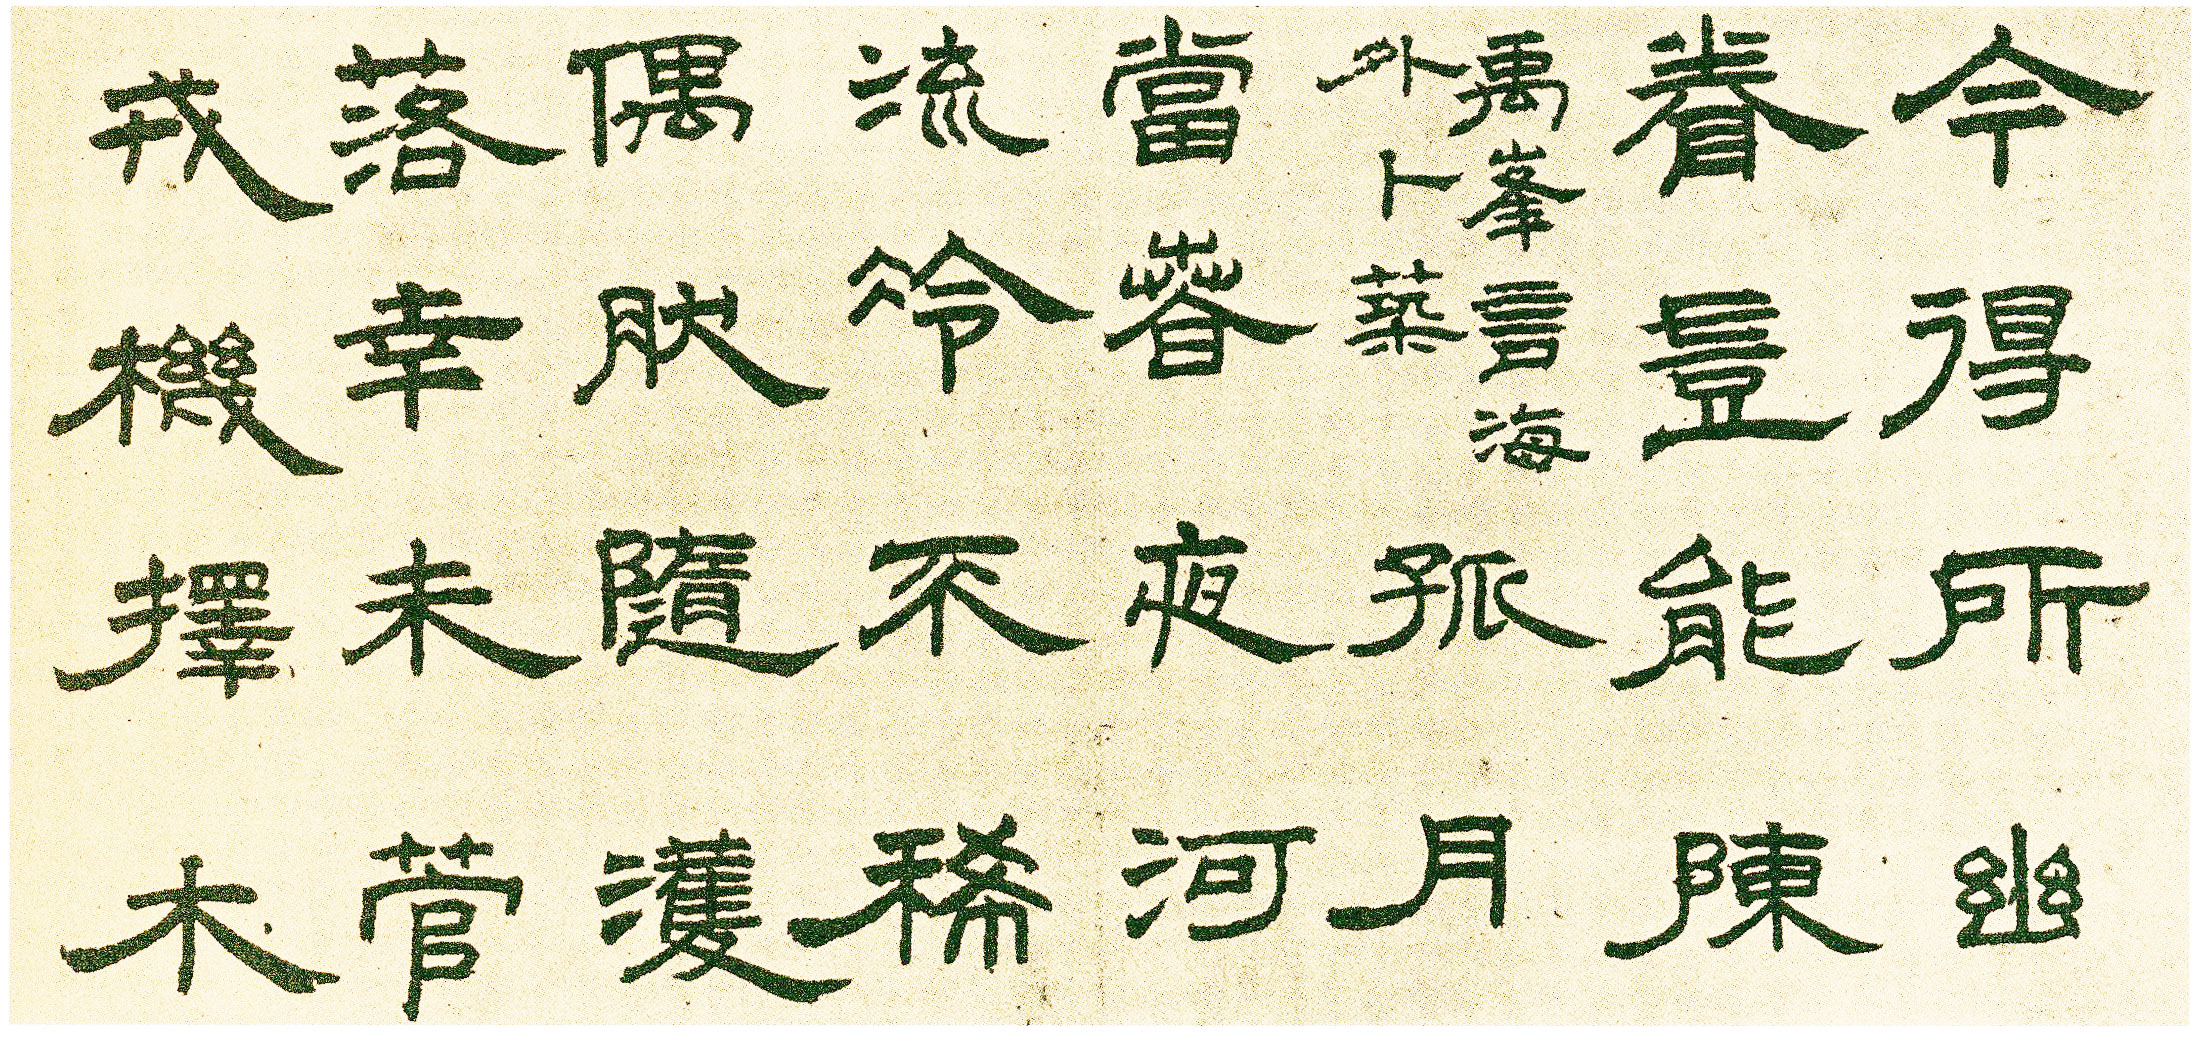 今得所幽
眷豈能陳
禹峯言海
外卜築
孤月
當春夜河
流冷不稀
偶肰隨濩
落幸未菅
戎機擇木